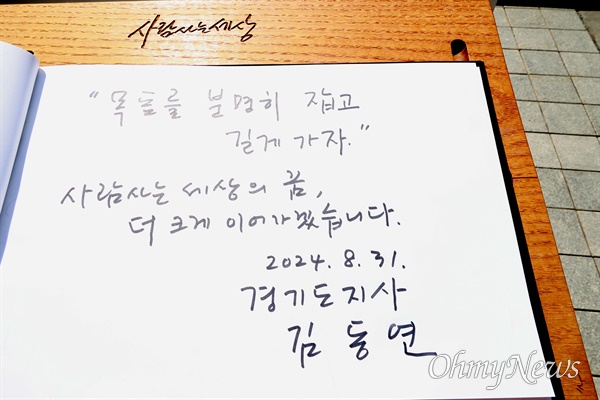 사람사는세상
"목표를 분명히 잡고
길게 가자."
사람사는 세상의 꿈,
더 크게 이어가겠습니다.
2024. 8. 31.
경기도지사
김동연
OhmyNews